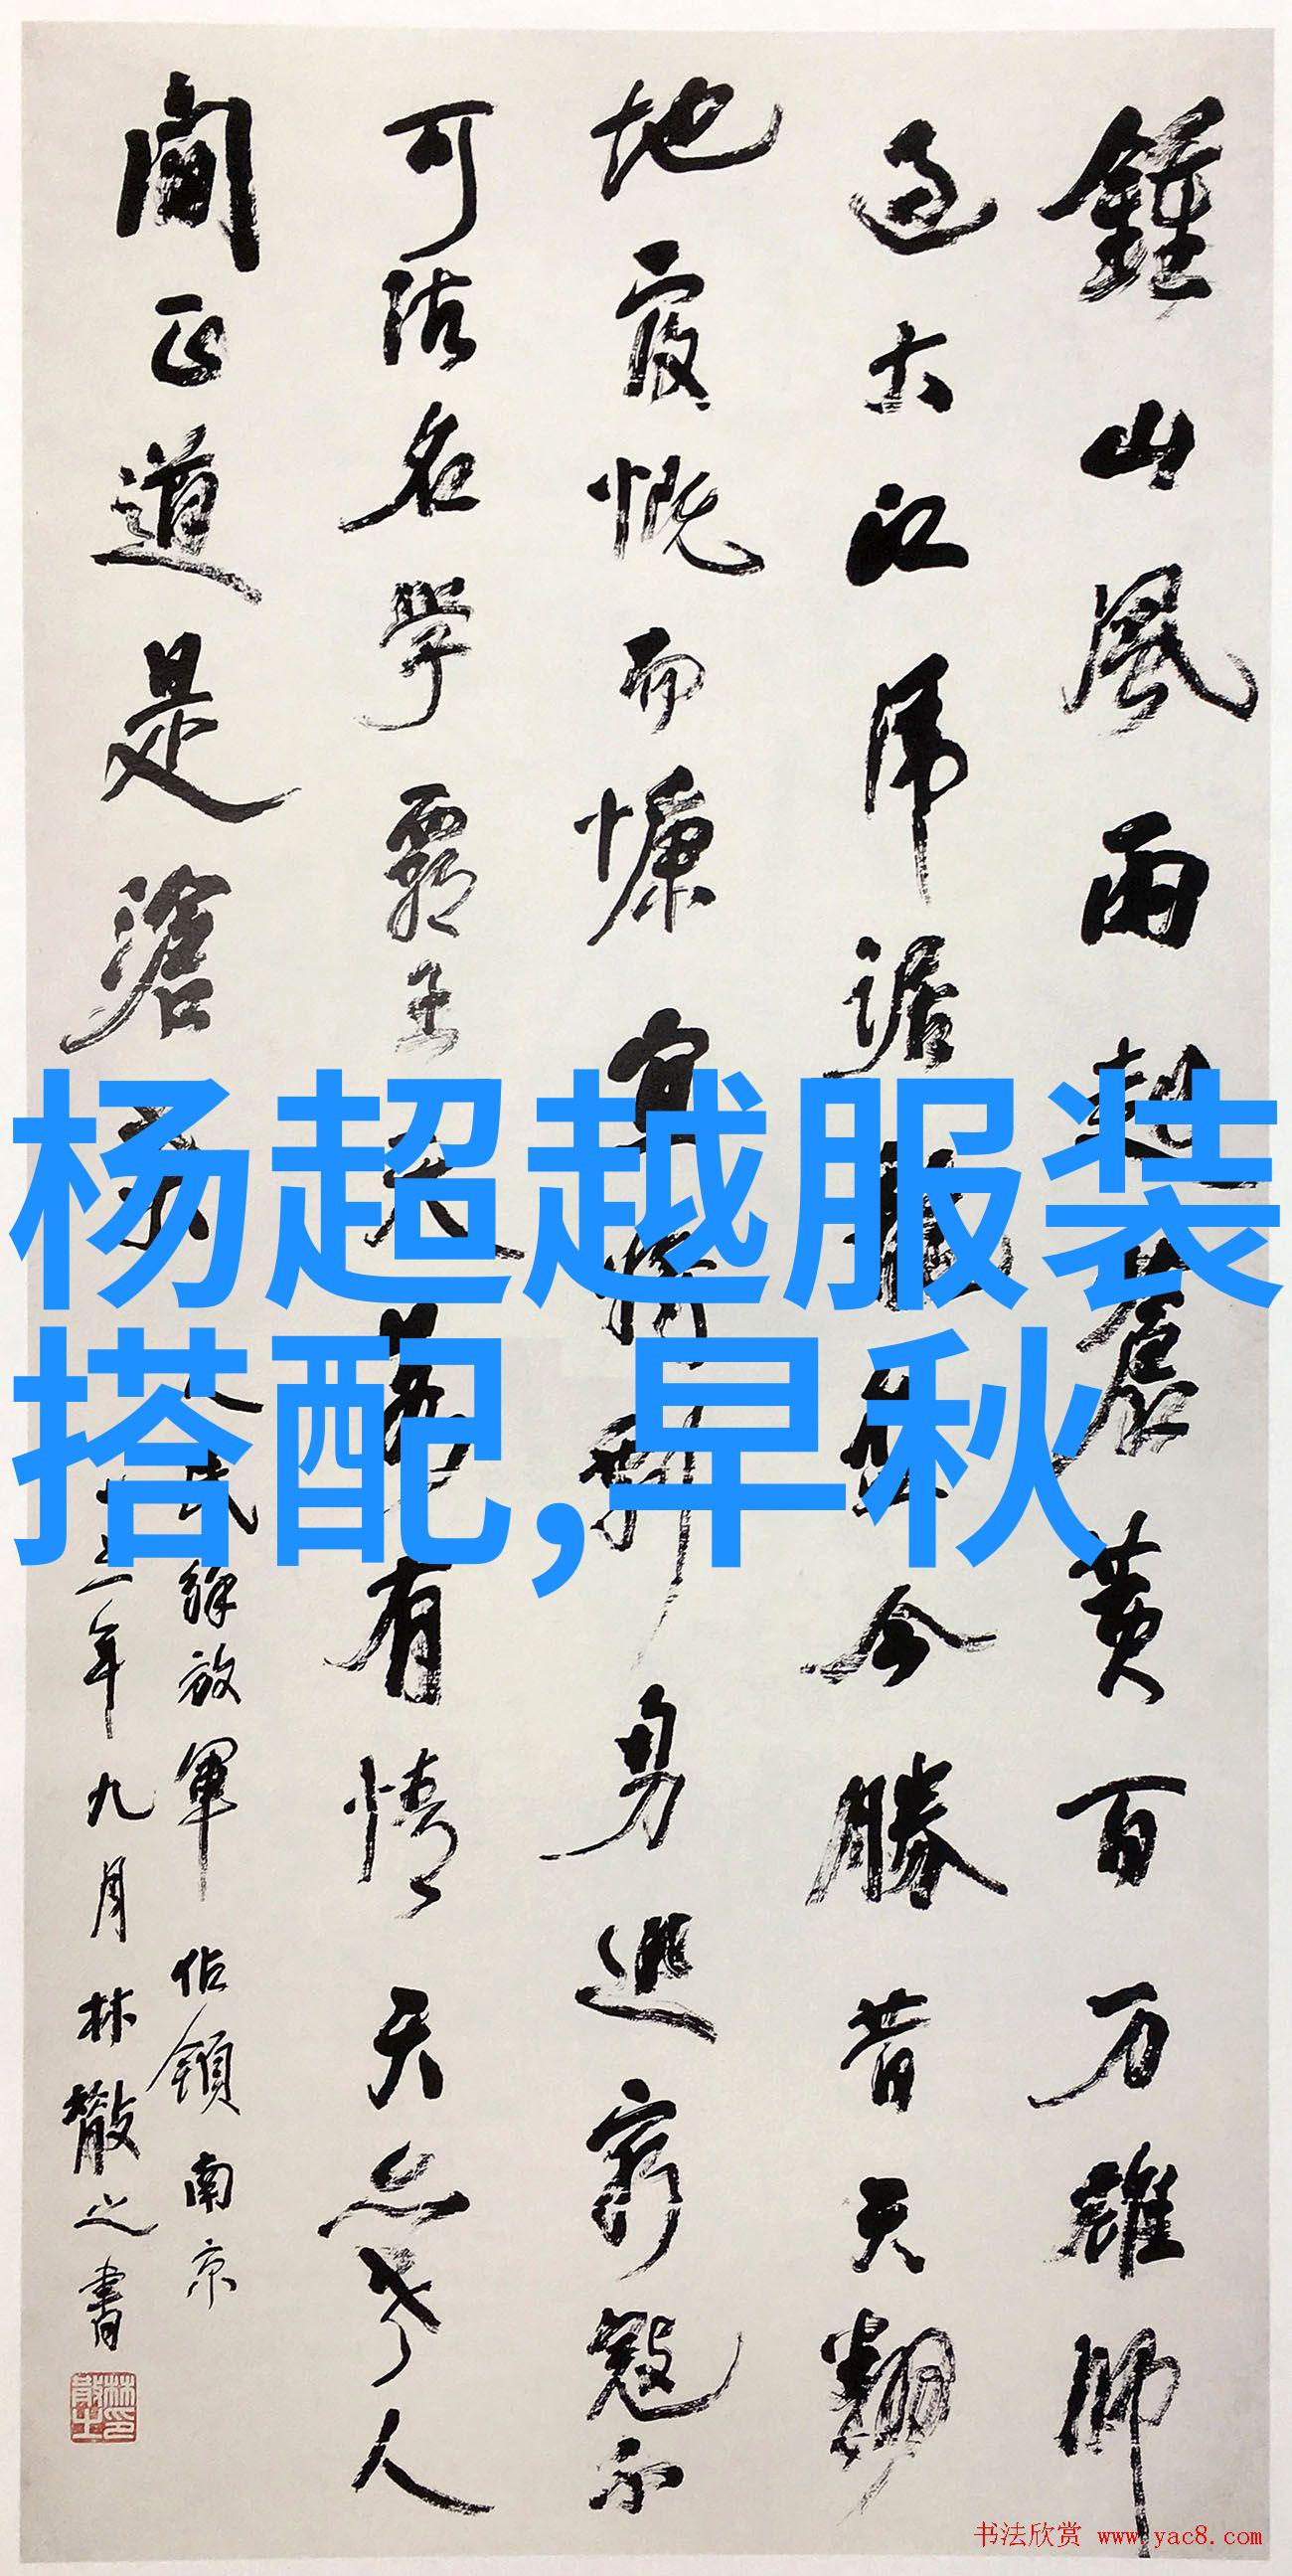 鍾山風雨起蒼黃百万雄師
過大江虎踞龍盤今勝昔天翻
地覆慨而慷宜將剩勇追窮寇不
可沽名學霸王天若有情天亦老人
間正道是滄桑
人民解放軍佔領南京
五年九月林散之書
林散之印
杨超越服装
搭配,早秋
书法欣赏 www.yac8.com